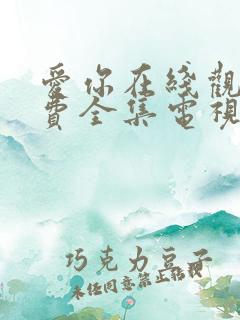 愛你在綫觀
費全集電視
巧克力豆子
未经同意禁止转载